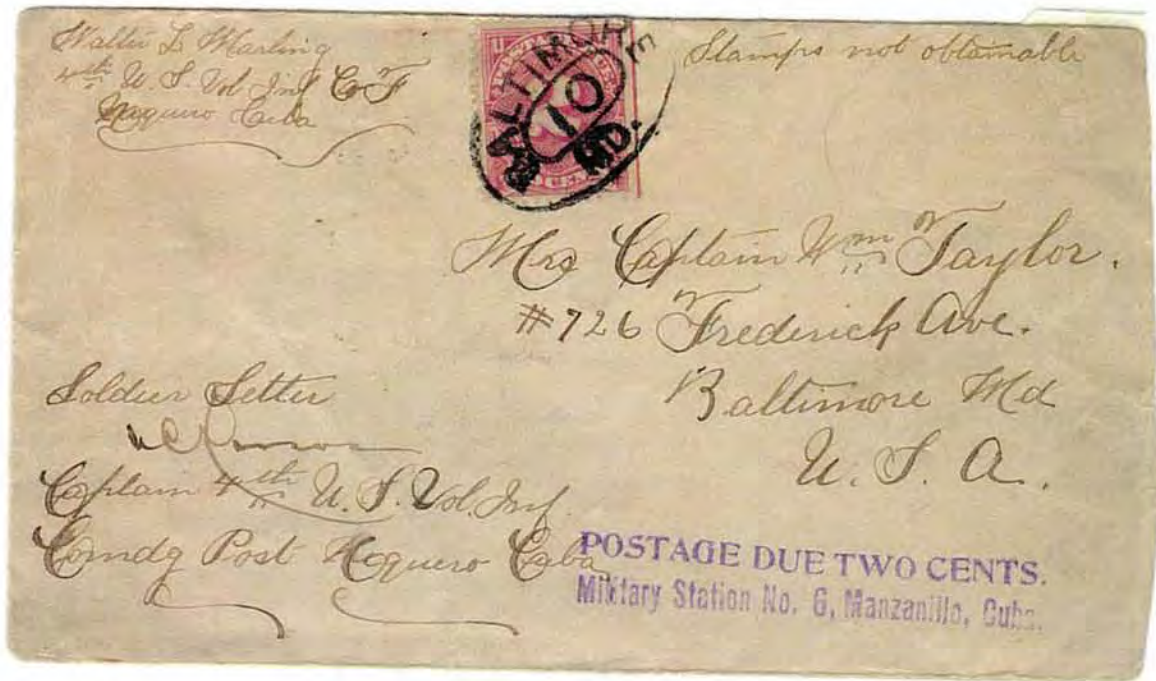 Walter L Marling
4th U. S. Vol Inf Co F
Niquero Cuba
Stamps not obtainable
BALTIMORE
10
MD.
POSTAGE
CENTS
Mrs Captain Wm Taylor.
#726 Frederick Ave.
Baltimore Md
U. S. A.
Soldier Letter
Captain 4th U. S. Vol. Inf.
Comdg Post Niquero Cuba
POSTAGE DUE TWO CENTS.
Military Station No. 6, Manzanillo, Cuba.